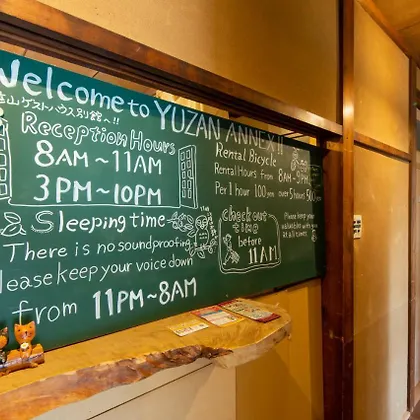 Welcome to YUZAN ANNEX!!
山ゲストハウス別館へ!!
Reception Hours
8AM~11AM
3PM~10PM
& Sleeping time
There is no soundproofing
Please keep your voice down
from 11PM~8AM
Rental Bicycle
Rental Hours from 8AM~9PM
Per 1 hour 100yen over 5 hours 500yen
check out
time
before
11AM
Please keep your
valuables with you
at all times.